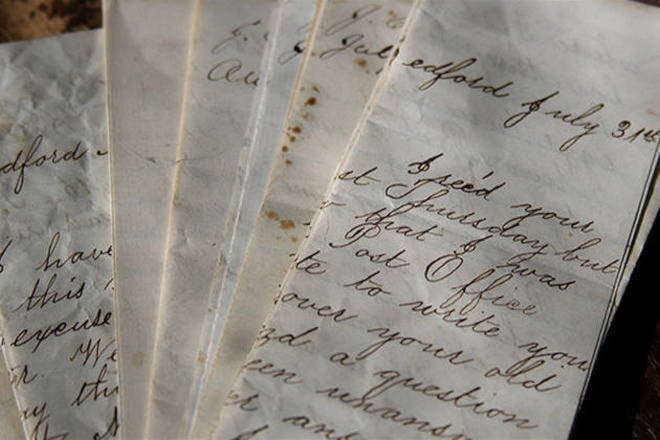 dford -
I have
this
excuse
r. We
Au
Jul
edford July 31st
I rec'd your
st Thursday but
r that I was
Post Office
te to write you
over your old
d a question
een unansw
er an